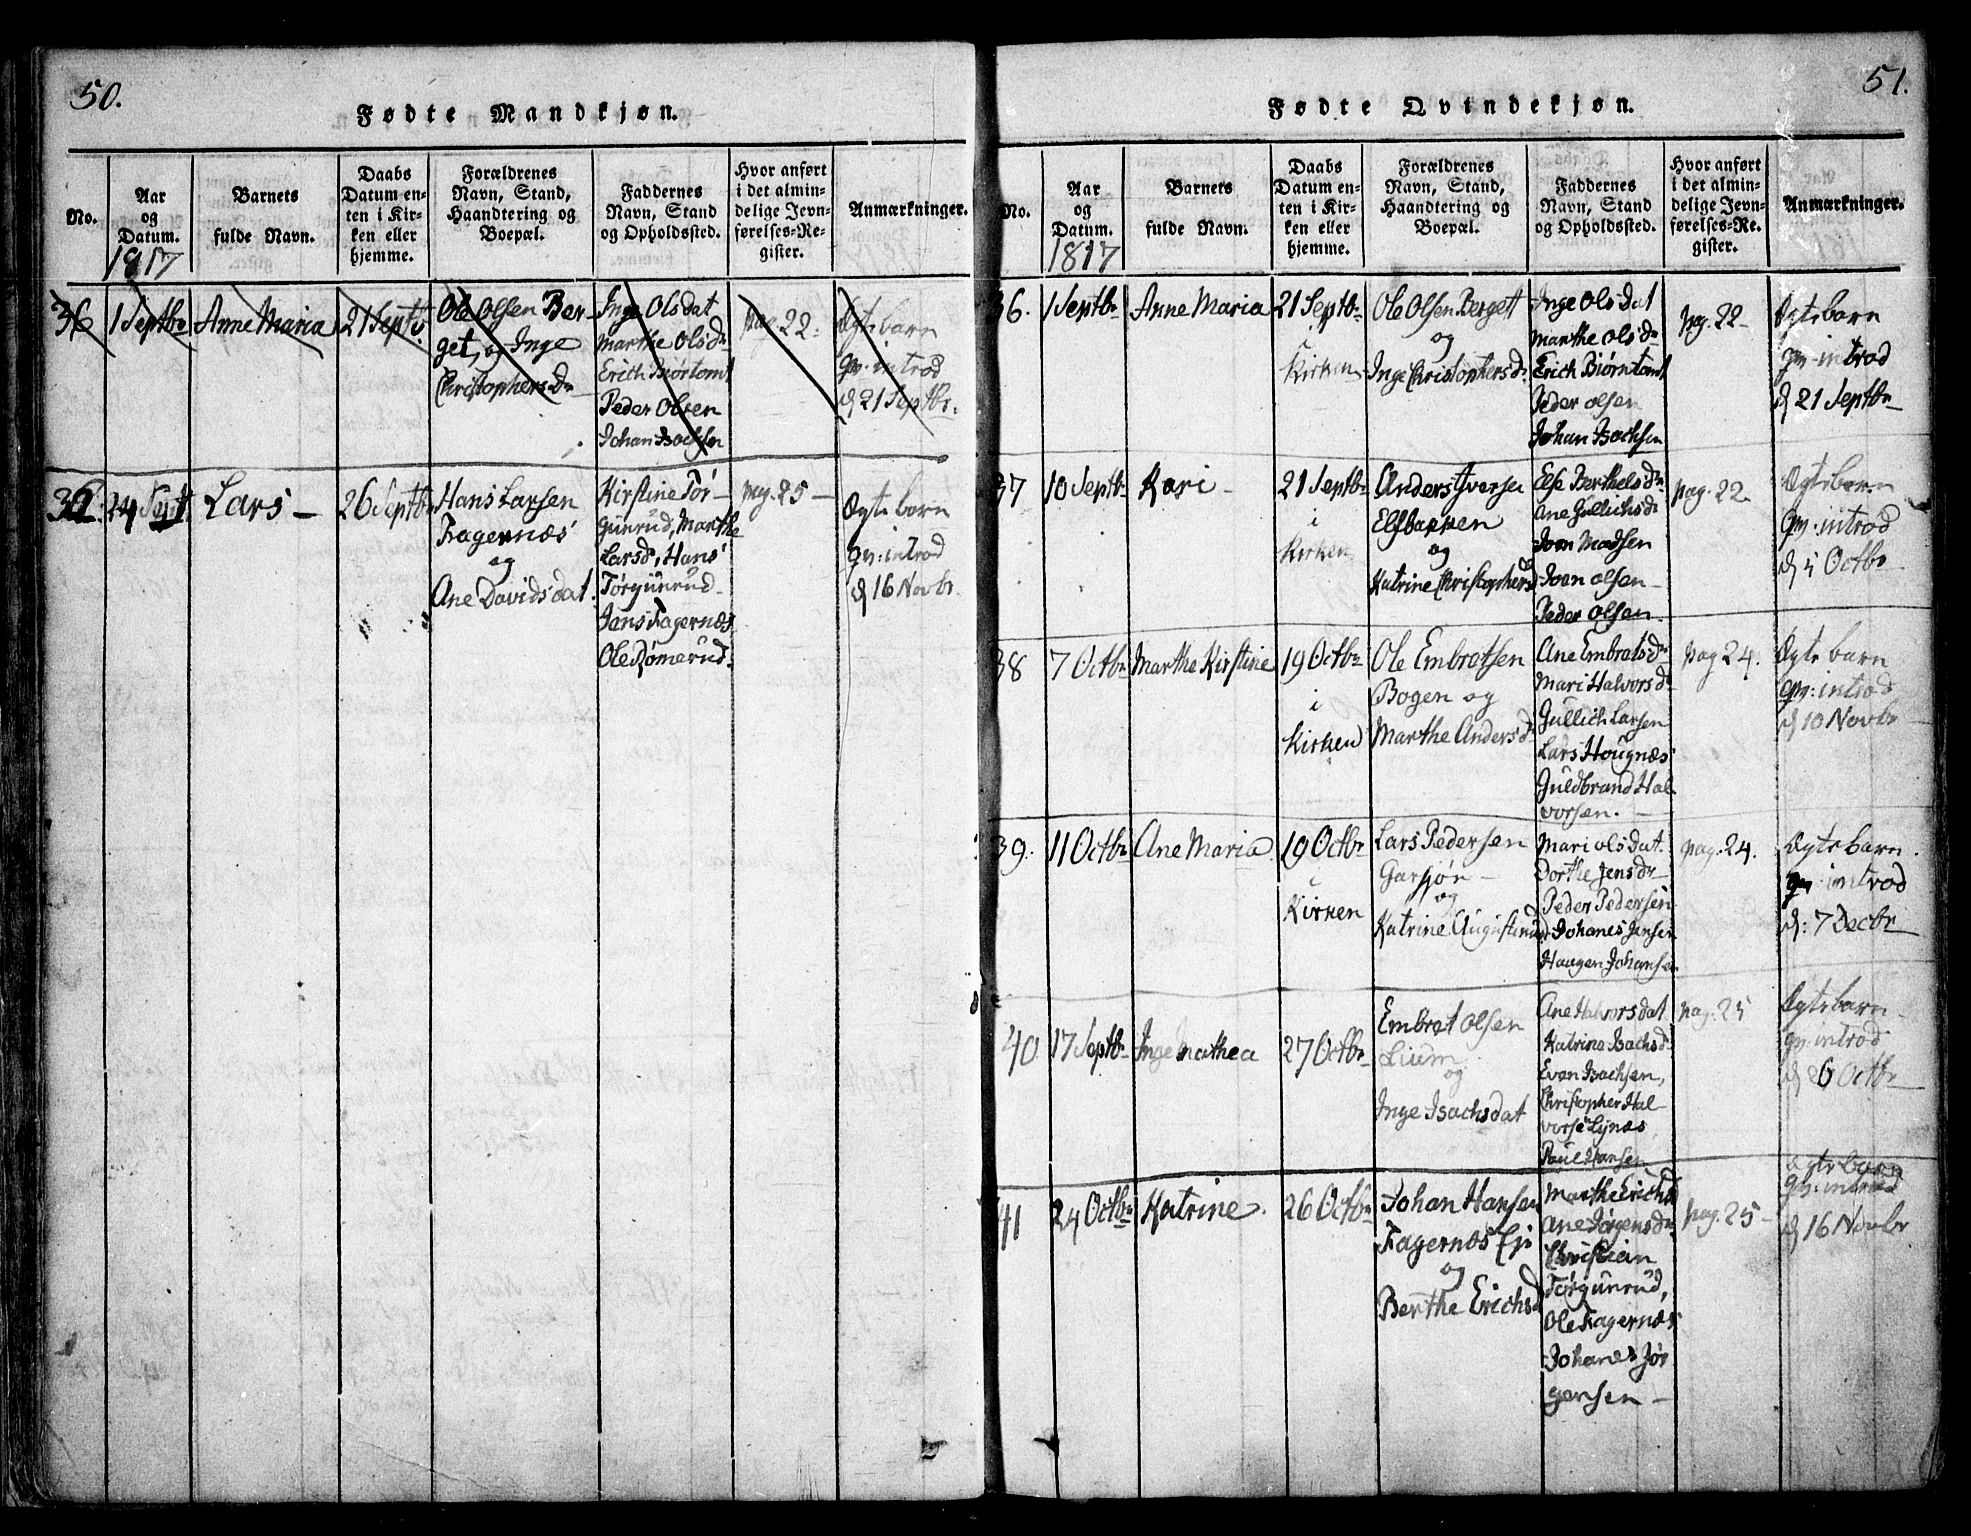 50.
Fødte Mandkjøn.
No.
Aar
og
Datum.
1817
Barnets
fulde Navn.
Daabs
Datum en-
ten i Kir-
ken eller
hjemme.
Forældrenes
Navn, Stand,
Haandtering og
Boepæl.
Faddernes
Navn, Stand
og Opholdssted.
Hvor anført
i det almin-
delige Jevn-
førelses-Re-
gister.
Anmærkninger.
36
1 Septbr
Anne Maria
21 Septbr
Ole Olsen Ber-
get, og Inge
Christophersdr
Inge Olsdat
Marthe Olsdr
Erich Biørtomt
Peder Olsen
Johan Isachsen
pag. 22.
Ægte barn
gr. introd
d 21 Septbr.
24 Sept
Lars —
26 Septbr
Hans Larsen
Fagernæs
og
Ane Davidsdat.
Kirstine Tør-
gunrud, Marthe
Larsd, Hans
Tørgunrud
Jens Fagernæs
Ole Rømerud.
pag. 25 —
Ægte barn
gr: introd
d 16 Novbr.
51.
Fødte Qvindekjøn.
No.
Aar
og
Datum.
1817
Barnets
fulde Navn.
Daabs
Datum en-
ten i Kir-
ken eller
hjemme.
Forældrenes
Navn, Stand,
Haandtering og
Boepæl.
Faddernes
Navn, Stand
og Opholdssted.
Hvor anført
i det almin-
delige Jevn-
førelses-Re-
gister.
Anmærkninger.
36.
1 Septbr
Anne Maria
21 Septbr
i
Kirken
Ole Olsen Berget
og
Inge Christophersd.
Inge Olsdat
Marthe Olsdr
Erich Biørntomt
Peder Olsen
Johan Isachsen
pag. 22 -
Ægtebarn
gr. introd
d 21 Septbr
37
10 Septbr
Kari -
21 Septbr
i
Kirken
Anders Iversen
Elfbakken
og
Katrine Christophersd
Else Berthelsdr
Ane Gullichsdr
Joen Madsen
Joen Olsen -
Peder Olsen.
pag. 22
Ægtebarn
gr: introd
d 5 Octbr
38
7 Octbr
Marthe Kirstine
19 Octbr
i
Kirken
Ole Embretsen
Bogen og
Marthe Andersdr
Ane Embretsdr
Mari Halvorsdr
Gullich Larsen
Lars Hougnæs
Guldbrand Hal-
vorsen. -
pag 24.
Ægte barn
gr: introd
d 10 Novbr
39.
11 Octbr
Ane Maria
19 Octbr
i
Kirken
Lars Pedersen
Garsjør -
og
Katrine Augustinsdr
Mari Olsdat.
Dorthe Jensdr
Peder Pedersen
Johanes Jensen
Haagen Johansen
pag. 24.
Ægte barn.
gr. introd
d: 7 Decbr
40
17 Septbr
Inge Mathea
27 Octbr
Embret Olsen
Lium
og
Inge Isachsdat
Ane Halvorsdat
Katrine Isachsd
Even Isachsen,
Christopher Hal-
vorsen Lynæs
Paul Hansen
pag. 25
Ægtebarn
gr. introd
d 26 Octbr
41
24 Octbr
Katrine.
26 Octbr
Johan Hansen
Fagernæs Ej
og
Berthe Erichsd
Marthe Erichsd
Ane Jørgensdr
Christian
Tørgunrud,
Ole Fagernæs
Johanes Jør
gensen -
pag. 25 -
Ægte barn
gr: introd
d 16 Novbr